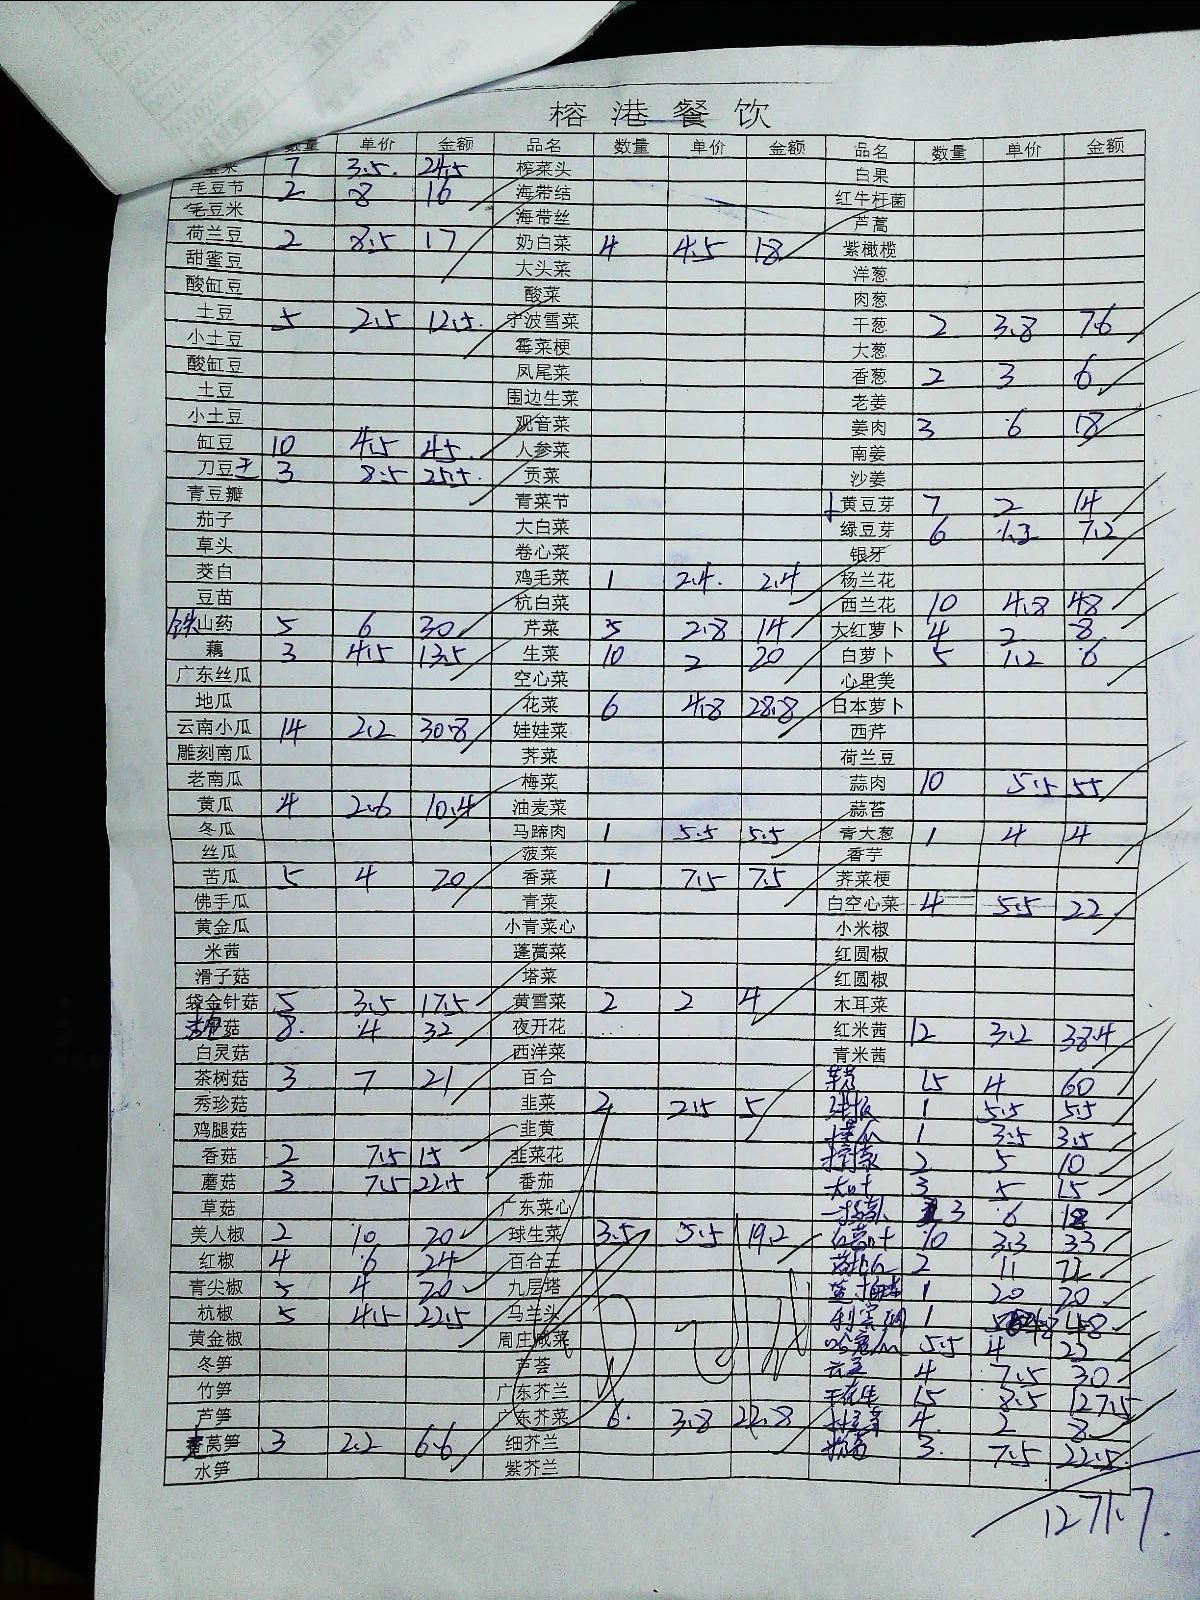 榕港餐饮
数量 单价 金额 品名 数量 单价 金额 品名 数量 单价 金额
7 3.5 24.5 榨菜头 白果
毛豆节 2 8 16 海带结 红牛杆菌
毛豆米 海带丝 芦蒿
荷兰豆 2 8.5 17 奶白菜 4 4.5 18 紫橄榄
甜蜜豆 大头菜 洋葱
酸缸豆 酸菜 肉葱
土豆 5 2.5 12.5 宁波雪菜 干葱 2 3.8 7.6
小土豆 霉菜梗 大葱
酸缸豆 凤尾菜 香葱 2 3 6
土豆 围边生菜 老姜
小土豆 观音菜 姜肉 3 6 18
缸豆 10 4.5 45 人参菜 南姜
刀豆王 3 8.5 25.5 贡菜 沙姜
青豆瓣 青菜节 黄豆芽 7 2 14
茄子 大白菜 绿豆芽 6 1.2 7.2
草头 卷心菜 银牙
茭白 鸡毛菜 1 2.4 2.4 杨兰花
豆苗 杭白菜 西兰花 10 4.8 48
铁山药 5 6 30 芹菜 5 2.8 14 大红萝卜 4 2 8
藕 3 4.5 13.5 生菜 10 2 20 白萝卜 5 1.2 6
广东丝瓜 空心菜 心里美
地瓜 花菜 6 4.8 28.8 日本萝卜
云南小瓜 14 2.2 30.8 娃娃菜 西芹
雕刻南瓜 荠菜 荷兰豆
老南瓜 梅菜 蒜肉 10 5.5 55
黄瓜 4 2.6 10.4 油麦菜 蒜苔
冬瓜 马蹄肉 1 5.5 5.5 青大葱 1 4 4
丝瓜 菠菜 香芋
苦瓜 5 4 20 香菜 1 7.5 7.5 荠菜梗
佛手瓜 青菜 白空心菜 4 5.5 22
黄金瓜 小青菜心 小米椒
米茜 蓬蒿菜 红圆椒
滑子菇 塔菜 红圆椒
袋金针菇 5 3.5 17.5 黄雪菜 2 2 4 木耳菜
菇 8 4 32 夜开花 红米茜 12 3.2 38.4
白灵菇 西洋菜 青米茜
茶树菇 3 7 21 百合 15 4 60
秀珍菇 韭菜 2 2.5 5 1 5.5 5.5
鸡腿菇 韭黄 1 3.5 3.5
香菇 2 7.5 15 韭菜花 2 5 10
蘑菇 3 7.5 22.5 番茄 大叶 3 5 15
草菇 广东菜心 3 6 18
美人椒 2 10 20 球生菜 3.5 5.5 19.2 10 3.3 33
红椒 4 6 24 百合王 2 11 22
青尖椒 5 4 20 九层塔 1 20 20
杭椒 5 4.5 22.5 马兰头 1 48
黄金椒 周庄咸菜 5.5 4 22
冬笋 芦荟 4 7.5 30
竹笋 广东芥兰 15 8.5 127.5
芦笋 广东芥菜 6 3.8 22.8 4 2 8
莴笋 3 2.2 6.6 细芥兰 3 7.5 22.5
水笋 紫芥兰
1271.7